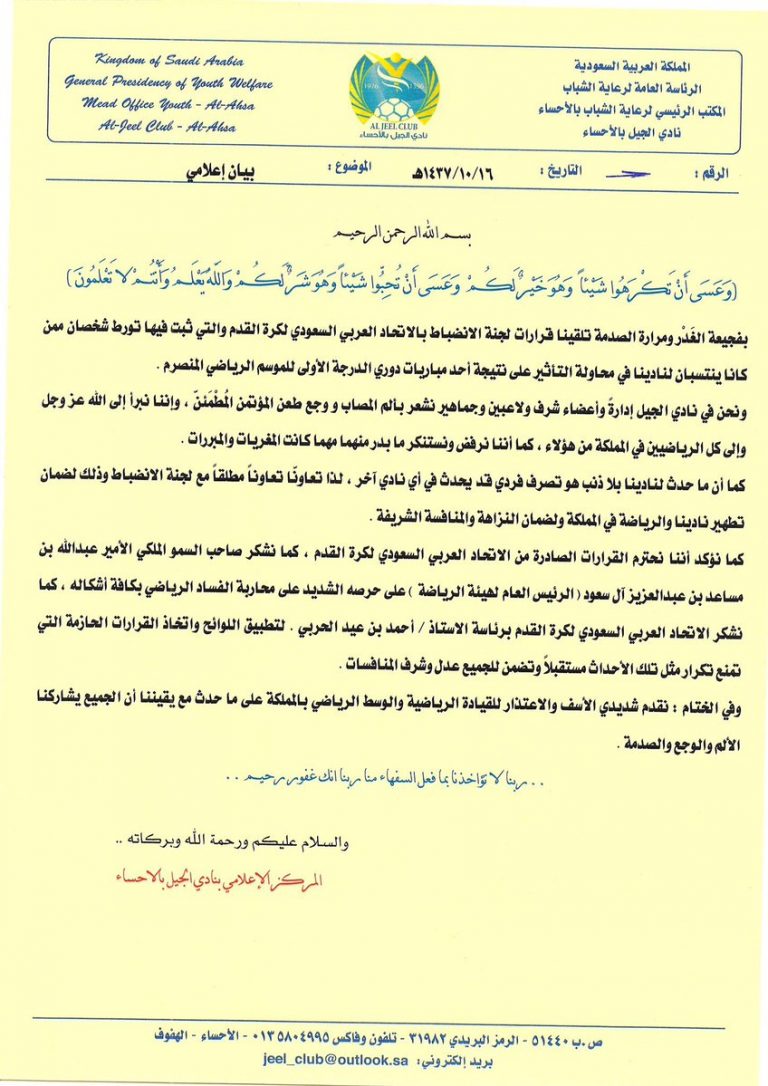 Kingdom of Saudi Arabia
General Presidency of Youth Welfare
Mead Office Youth - Al-Ahsa
Al-Jeel Club - Al-Ahsa
1976
1396
AL JEEL CLUB
نادي الجيل بالأحساء
المملكة العربية السعودية
الرئاسة العامة لرعاية الشباب
المكتب الرئيسي لرعاية الشباب بالأحساء
نادي الجيل بالأحساء
الرقم : التاريخ : ١٤٣٧/١٠/١٦هـ الموضوع : بيان إعلامي
بسم الله الرحمن الرحيم
(وَعَسَى أَنْ تَكْرَهُوا شَيْئاً وَهُوَ خَيْرٌ لَكُمْ وَعَسَى أَنْ تُحِبُّوا شَيْئاً وَهُوَ شَرٌّ لَكُمْ وَاللَّهُ يَعْلَمُ وَأَنْتُمْ لا تَعْلَمُونَ)
بفجيعة الغَدْر ومرارة الصدمة تلقينا قرارات لجنة الانضباط بالاتحاد العربي السعودي لكرة القدم والتي ثبت فيها تورط شخصان ممن
كانا ينتسبان لنادينا في محاولة التأثير على نتيجة أحد مباريات دوري الدرجة الأولى للموسم الرياضي المنصرم .
ونحن في نادي الجيل إدارةً وأعضاء شرف ولاعبين وجماهير نشعر بألم المصاب و وجع طعن المؤتمن المُطْمَئنّ ، وإننا نبرأ إلى الله عز وجل
وإلى كل الرياضيين في المملكة من هؤلاء ، كما أننا نرفض ونستنكر ما بدر منهما مهما كانت المغريات والمبررات .
كما أن ما حدث لنادينا بلا ذنب هو تصرف فردي قد يحدث في أي نادي آخر ، لذا تعاونّا تعاوناً مطلقاً مع لجنة الانضباط وذلك لضمان
تطهير نادينا والرياضة في المملكة ولضمان النزاهة والمنافسة الشريفة .
كما نؤكد أننا نحترم القرارات الصادرة من الاتحاد العربي السعودي لكرة القدم ، كما نشكر صاحب السمو الملكي الأمير عبدالله بن
مساعد بن عبدالعزيز آل سعود ( الرئيس العام لهيئة الرياضة ) على حرصه الشديد على محاربة الفساد الرياضي بكافة أشكاله ، كما
نشكر الاتحاد العربي السعودي لكرة القدم برئاسة الاستاذ / أحمد بن عيد الحربي . لتطبيق اللوائح واتخاذ القرارات الحازمة التي
تمنع تكرار مثل تلك الأحداث مستقبلاً وتضمن للجميع عدل وشرف المنافسات .
وفي الختام : نقدم شديدي الأسف والاعتذار للقيادة الرياضية والوسط الرياضي بالمملكة على ما حدث مع يقيننا أن الجميع يشاركنا
الألم والوجع والصدمة .
. . ربنا لا تؤاخذنا بما فعل السفهاء منا ربنا انك غفور رحيم . .
والسلام عليكم ورحمة الله وبركاته ..
المركز الإعلامي بنادي الجيل بالاحساء
ص.ب ٥١٤٤٠ - الرمز البريدي ٣١٩٨٢ - تلفون وفاكس ٠١٣٥٨٠٤٩٩٥ - الأحساء - الهفوف
بريد إلكتروني: jeel_club@outlook.sa